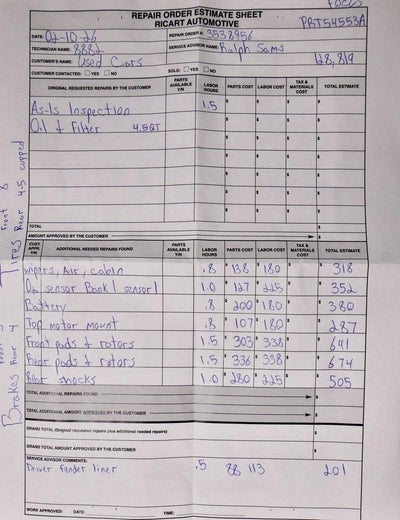 Focus
REPAIR ORDER ESTIMATE SHEET
RICART AUTOMOTIVE
PBT54553A
DATE: 02-10-26 REPAIR ORDER #: 3538956
TECHNICIAN NAME: 8882 SERVICE ADVISOR NAME: Ralph Sams
CUSTOMER'S NAME: Used Cars 128,819
CUSTOMER CONTACTED: ☐ YES ☐ NO SOLD: ☐ YES ☐ NO
ORIGINAL REQUESTED REPAIRS BY THE CUSTOMER PARTS AVAILABLE Y/N LABOR HOURS PARTS COST LABOR COST TAX & MATERIALS COST TOTAL ESTIMATE
As-Is Inspection 1.5 $ $ $ $
Oil & Filter 4.5QT $ $ $ $
TOTAL
AMOUNT APPROVED BY THE CUSTOMER $
CUST. APPR. Y/N ADDITIONAL NEEDED REPAIRS FOUND PARTS AVAILABLE Y/N LABOR HOURS PARTS COST LABOR COST TAX & MATERIALS COST TOTAL ESTIMATE
wipers, Air, cabin .8 $138 $180 $ $318
O2 sensor Bank 1 sensor 1 1.0 $127 $225 $ $352
Battery .8 $200 $180 $ $380
Top motor mount .8 $107 $180 $ $287
Front pads & rotors 1.5 $303 $338 $ $641
Rear pads & rotors 1.5 $336 $338 $ $674
Rear shocks 1.0 $280 $225 $ $505
TOTAL ADDITIONAL REPAIRS FOUND $
TOTAL ADDITIONAL AMOUNT APPROVED BY THE CUSTOMER $
GRAND TOTAL (Original requested repairs plus additional needed repairs) $
GRAND TOTAL AMOUNT APPROVED BY CUSTOMER $
SERVICE ADVISOR COMMENTS:
Driver fender liner .5 88 113 201
WORK APPROVED: DATE: TIME:
Tires Front 8
Rear 4-5 cupped
Brakes Front
Rear 4